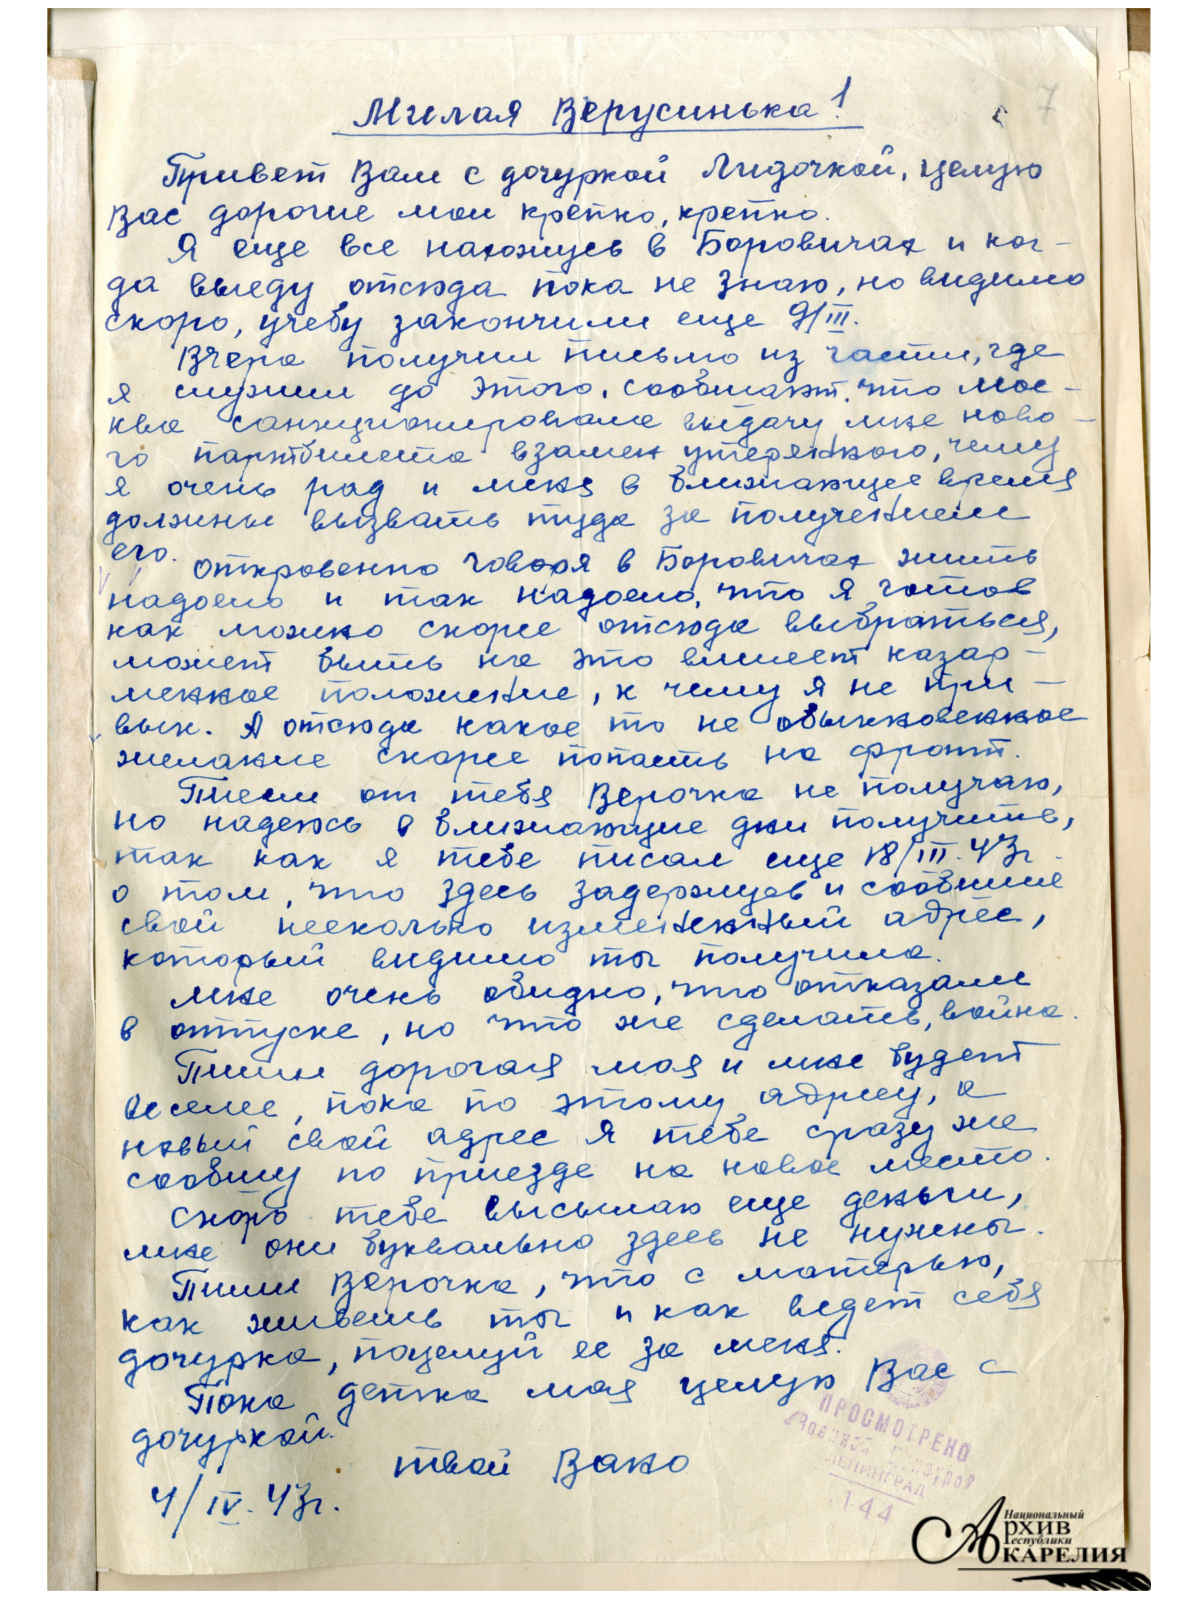 7
Милая Верусинька!
Привет Вам с дочуркой Лидочкой, целую
Вас дорогие мои крепко, крепко.
Я еще все нахожусь в Боровичах и ког-
да выеду отсюда пока не знаю, но видимо
скоро, учебу закончили еще 9/III.
Вчера получил письмо из части, где
я служил до этого, сообщают, что Мос-
ква санкционировала выдачу мне ново-
го партбилета взамен утерянного, чему
я очень рад и меня в ближайшее время
должны вызвать туда за получением
его.
Откровенно говоря в Боровичах жить
надоело и так надоело, что я готов
как можно скорее отсюда выбраться,
может быть на это влияет казар-
менное положение, к чему я не при-
вык. А отсюда какое то не обыкновенное
желание скорее попасть на фронт.
Писем от тебя Верочка не получаю,
но надеюсь в ближайшие дни получить,
так как я тебе писал еще 18/III.43г.
о том, что здесь задержусь и сообщил
свой несколько измененный адрес,
который видимо ты получила.
Мне очень обидно, что отказали
в отпуске, но что же сделать, война.
Пиши дорогая моя и мне будет
веселее, пока по этому адресу, а
новый свой адрес я тебе сразу же
сообщу по приезде на новое место.
Скоро тебе высылаю еще деньги,
мне они буквально здесь не нужны.
Пиши Верочка, что с матерью,
как живешь ты и как ведет себя
дочурка, поцелуй ее за меня.
Пока детка моя целую Вас с
дочуркой.
твой Вако
4/IV.43г.
ПРОСМОТРЕНО
Военной Цензурой
ЛЕНИНГРАД
144
Национальный
Архив
Республики
Карелия